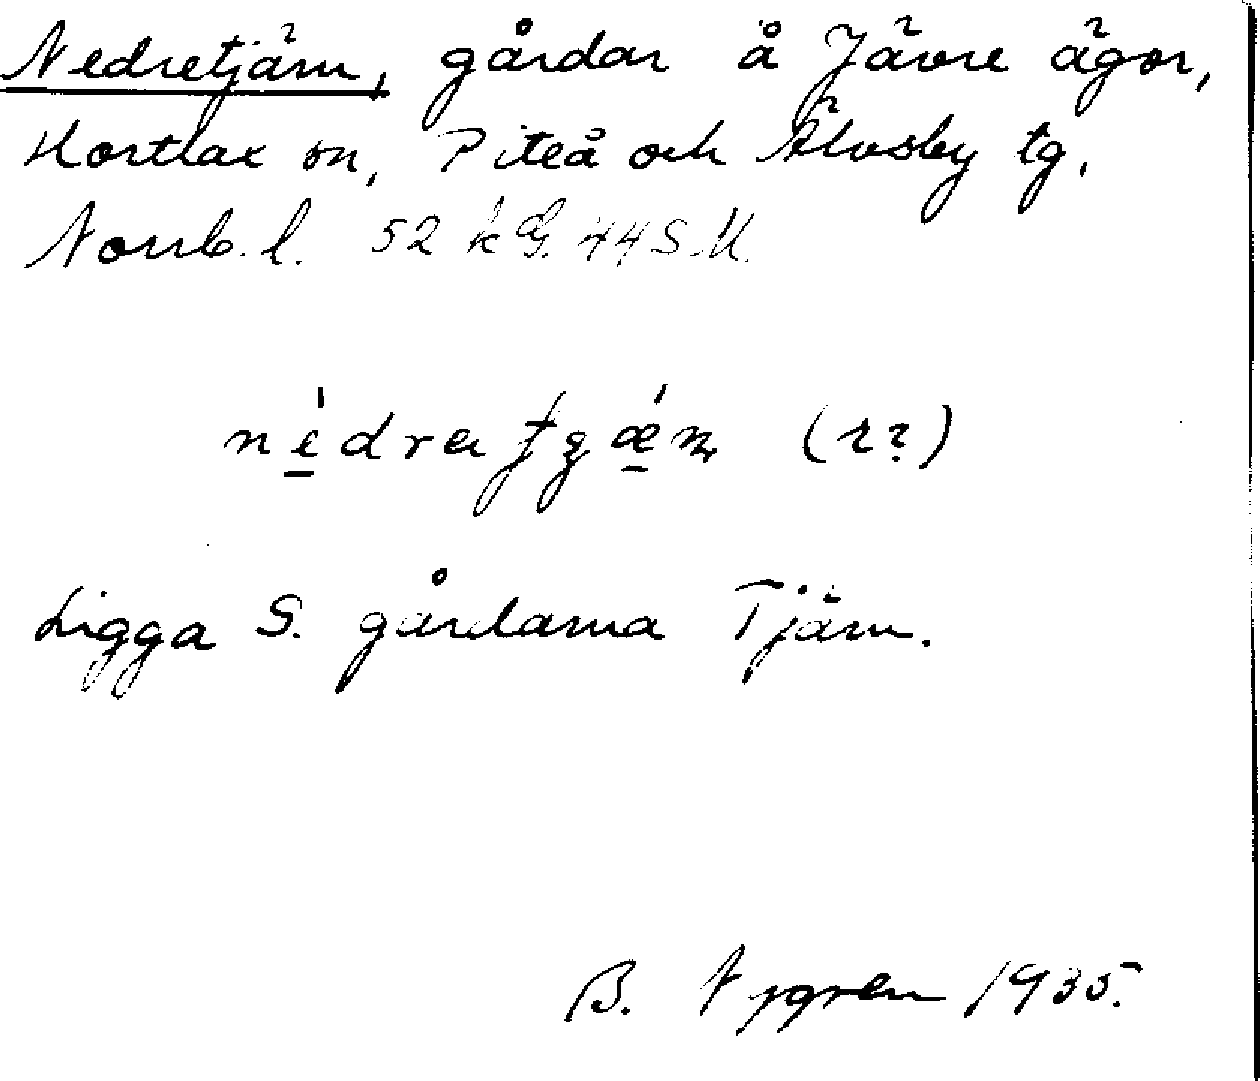 Nedretjärn, gårdar å Jävre ägor,
Hortlax sn, Piteå och Älvsby tg,
Norrb. l. 52 k G. 44 S.M.
(r?)
Ligga S. gårdarna Tjärn.
B. Nygren 1935.